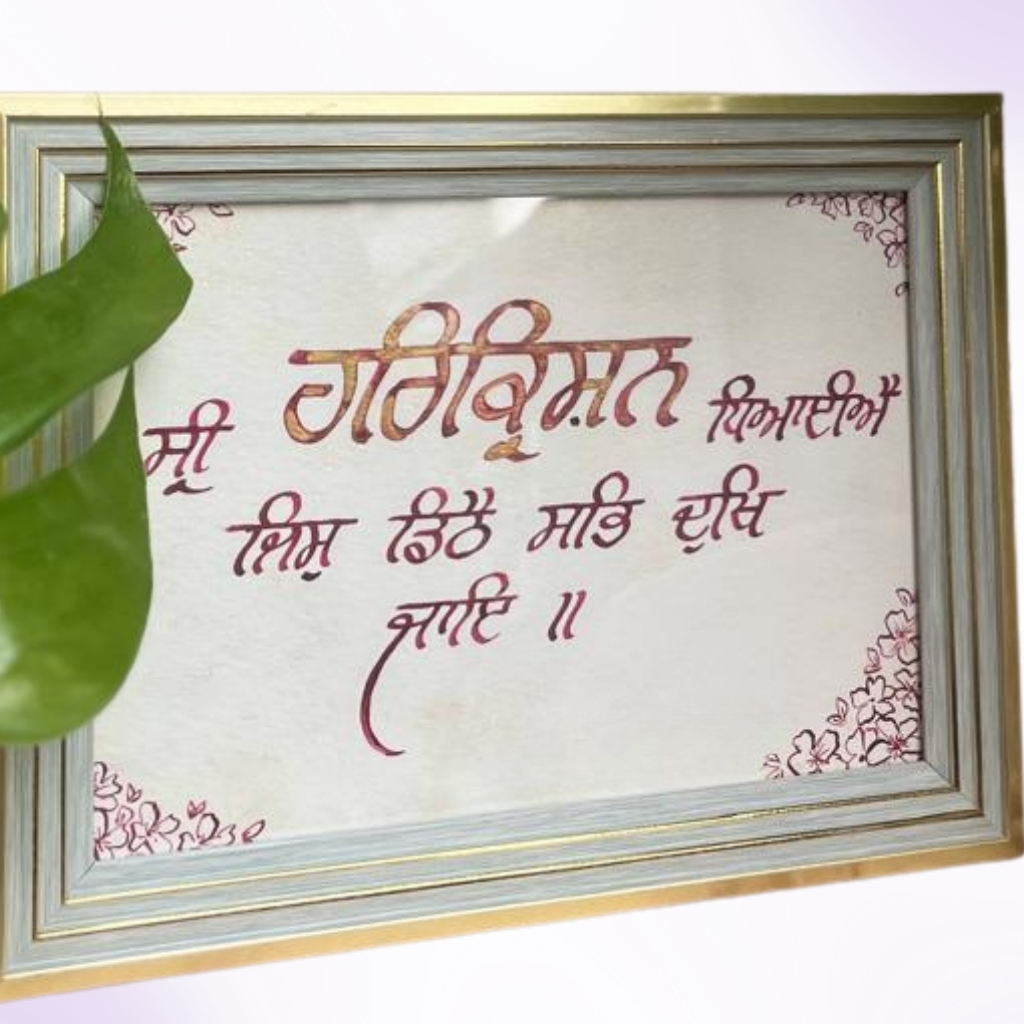 ਸ੍ਰੀ ਹਰਿਕ੍ਰਿਸ਼ਨ ਧਿਆਈਐ
ਜਿਸੁ ਡਿਠੈ ਸਭਿ ਦੁਖਿ
ਜਾਇ ॥